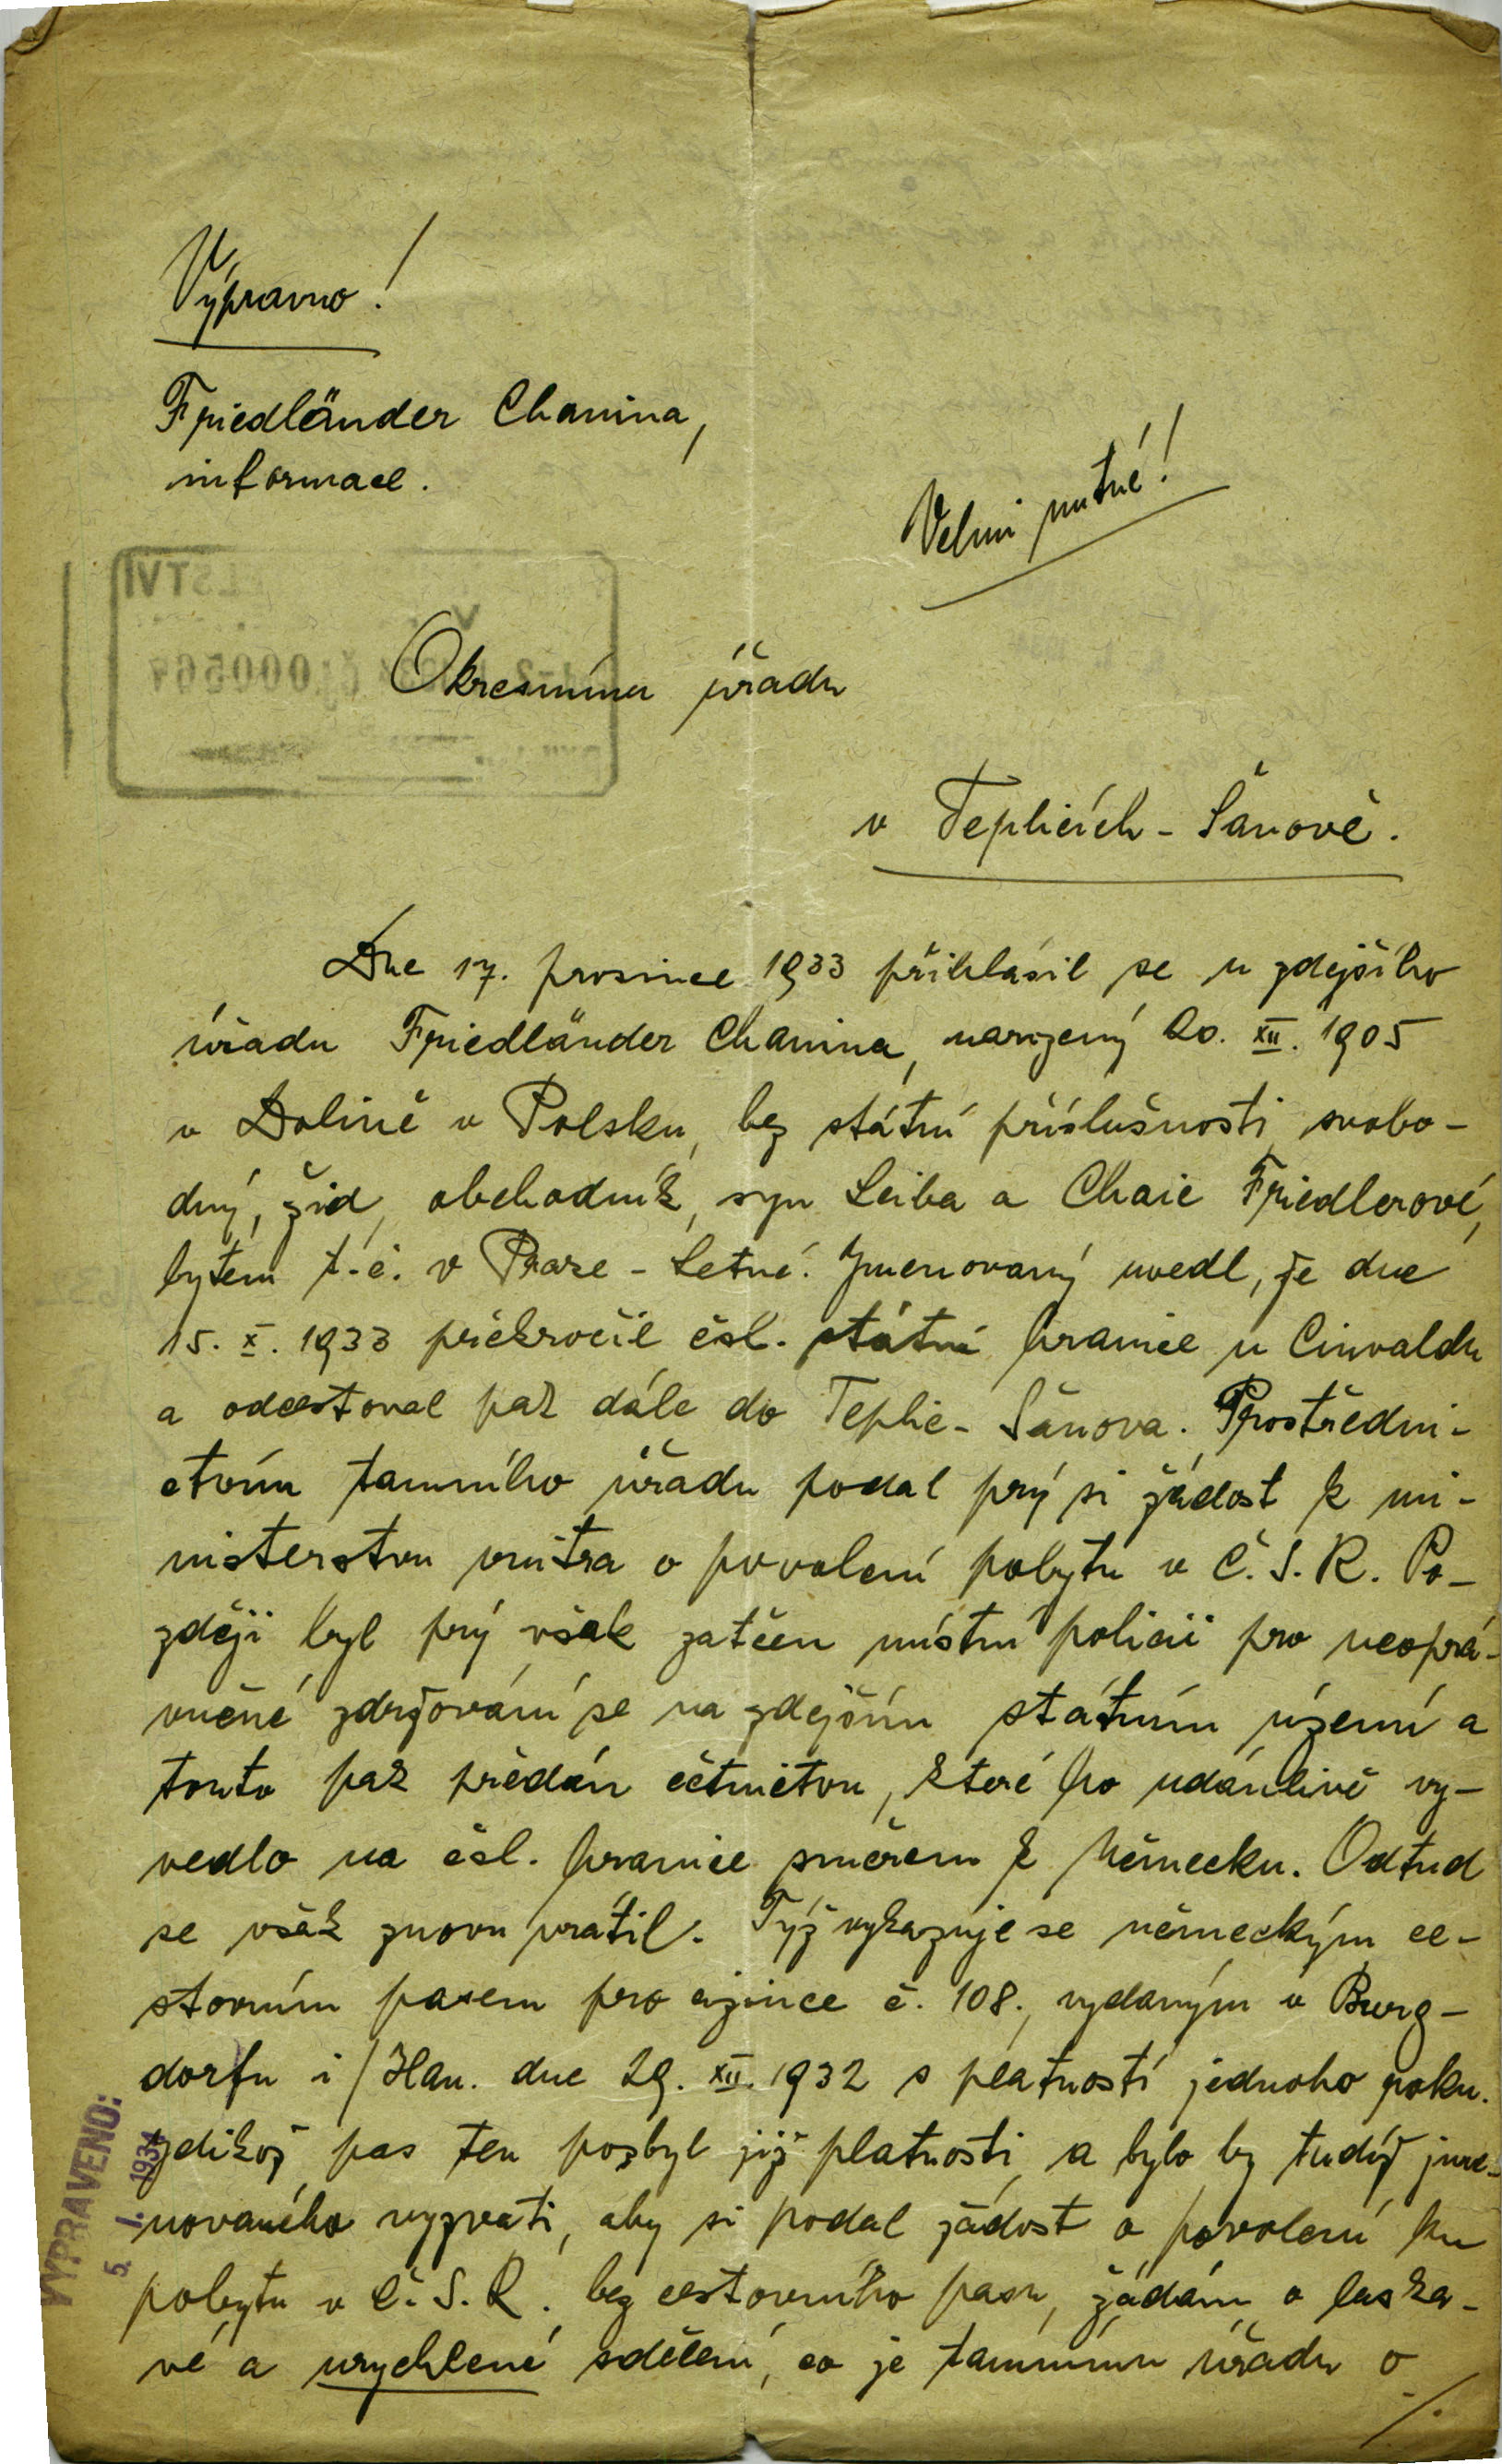 Výpravno!
Friedländer Chanina,
informace.
Velmi nutné!
Okresnímu úřadu
v Teplicích - Šanově.
Dne 17. prosince 1933 přihlásil se u zdejšího
úřadu Friedländer Chanina, narozený 20. XII. 1905
v Dolině v Polsku, bez státní příslušnosti, svobo-
dný, žid, obchodník, syn Leiba a Chaie Friedlerové,
bytem t.č. v Praze - Letné. Jmenovaný uvedl, že dne
15. X. 1933 překročil čsl. státní hranice u Cinvaldu
a odcestoval pak dále do Teplic - Šanova. Prostředni-
ctvím tamního úřadu podal prý si žádost k mi-
nisterstvu vnitra o povolení pobytu v Č.S.R. Po-
zději byl prý však zatčen místní policií pro neoprá-
vněné zdržování se na zdejším státním území a
touto pak předán četnictvu, které ho udánlivě vy-
vedlo na čsl. hranice směrem k Německu. Odtud
se však znovu vrátil. Týž vykazuje se německým ce-
stovním pasem pro cizince č. 108., vydaným v Burg-
dorfu i/Han. dne 29. XII. 1932 s platností jednoho roku.
Jelikož pas ten pozbyl již platnosti a bylo by tudíž jme-
novaného vyzvati, aby si podal žádost o povolení ku
pobytu v Č.S.R. bez cestovního pasu, žádám o laska-
vé a urychlené sdělení, co je tamnímu úřadu o
./.
VYPRAVENO:
5. I. 1934